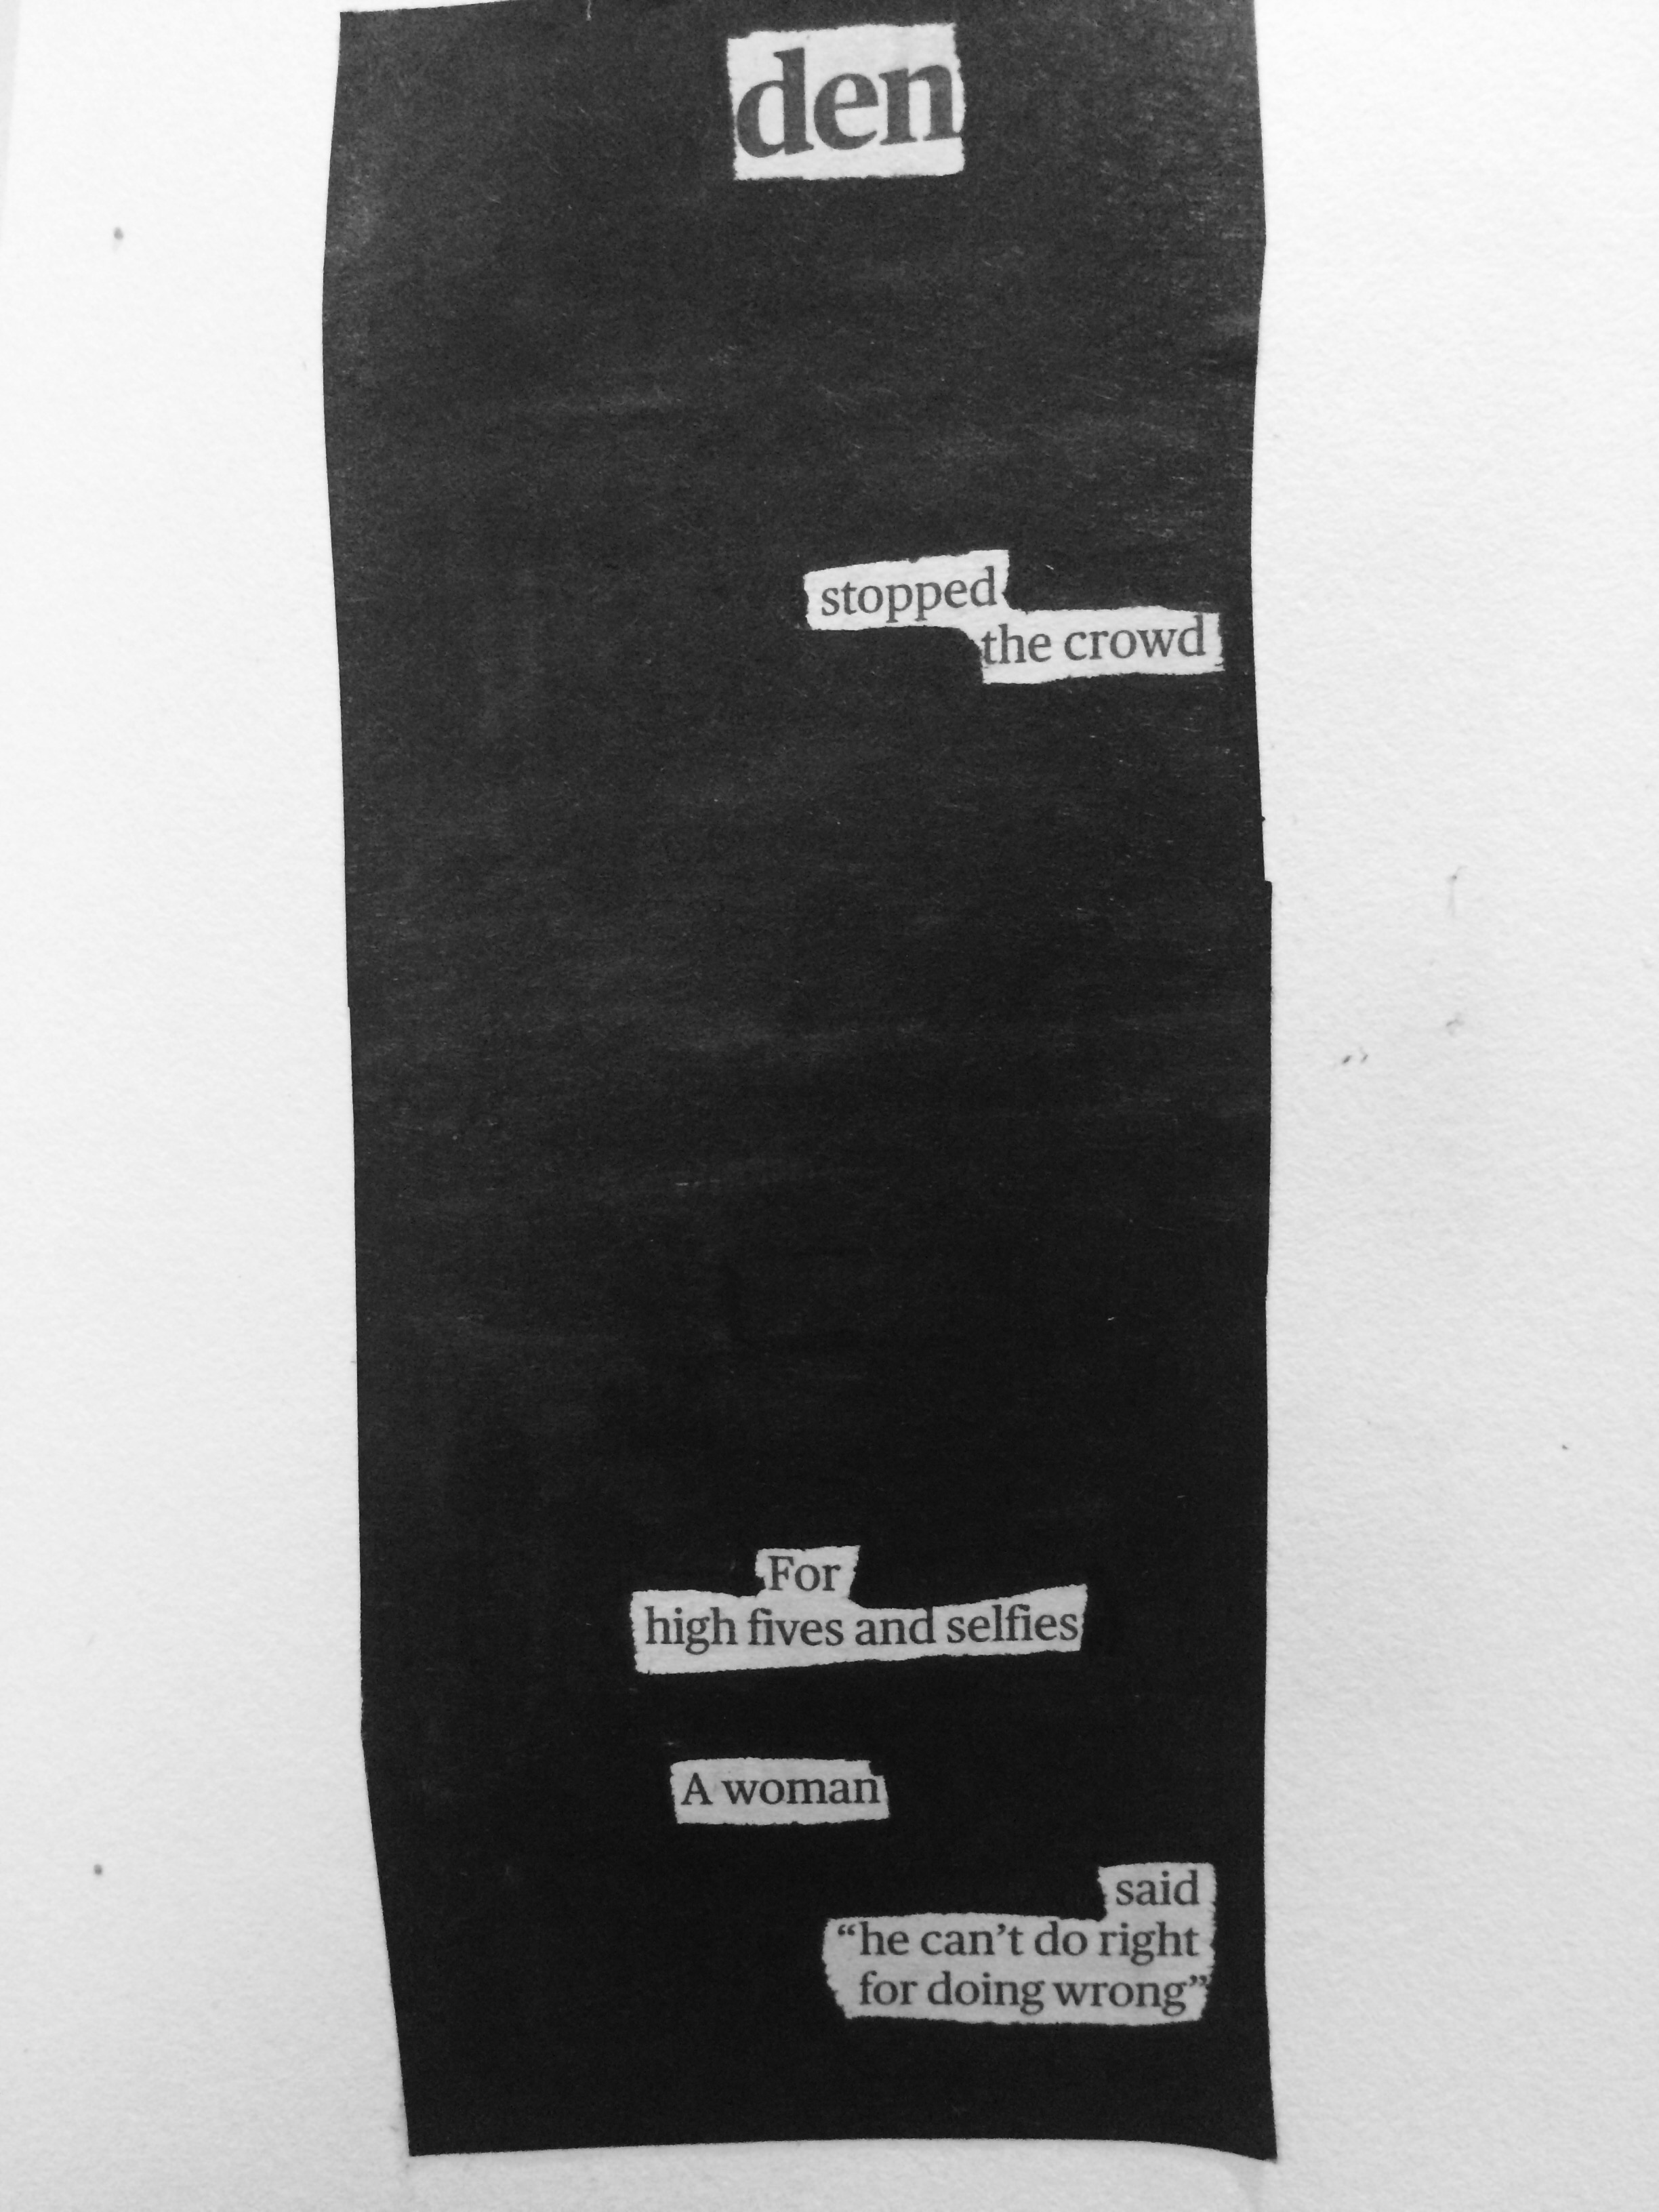 den
stopped
the crowd
For
high fives and selfies
A woman
said
“he can’t do right
for doing wrong”